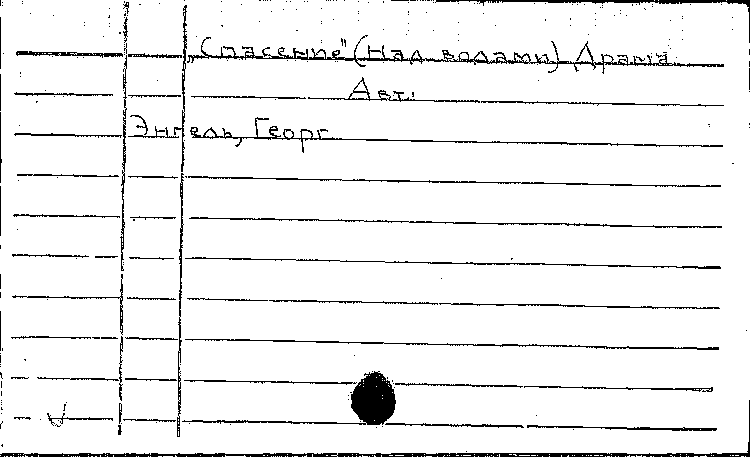 „Спасение" (Над водами) Драма
Авт.
Энгель, Георг